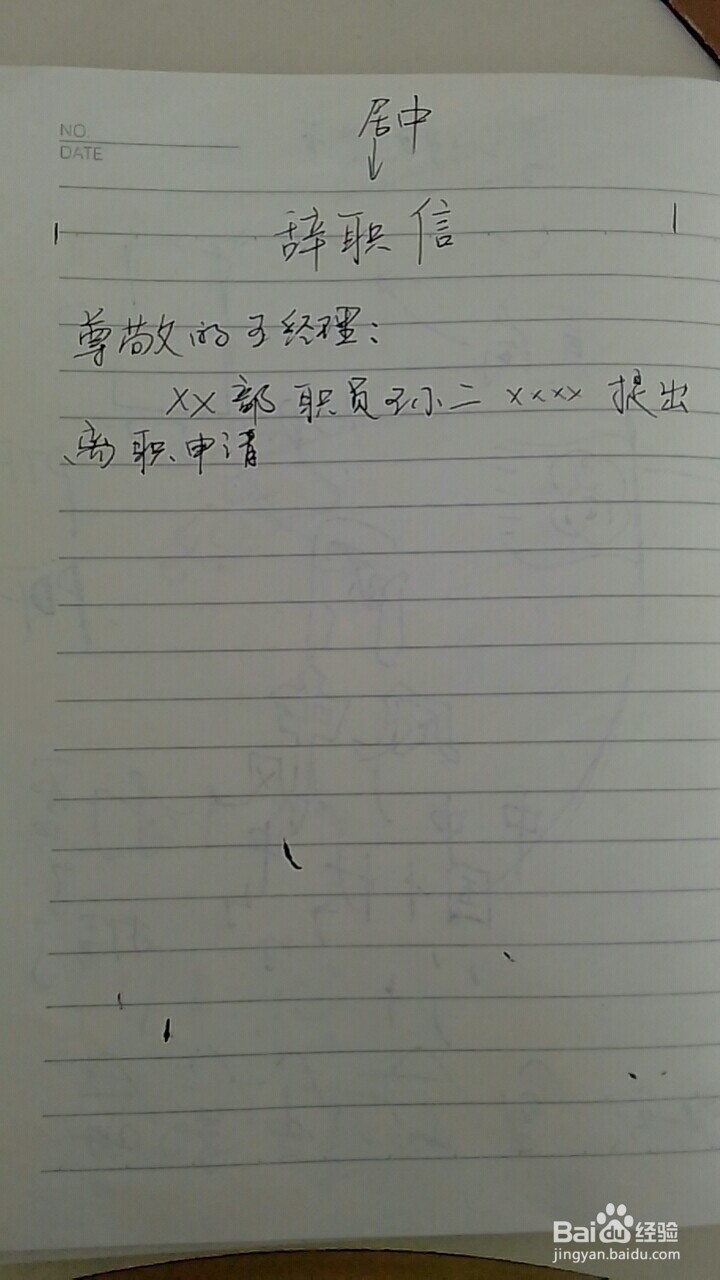 NO
DATE
居中
辞职信
尊敬的王经理：
XX部职员王小二 xxxx 提出
离职申请
Baidu经验
jingyan.baidu.com